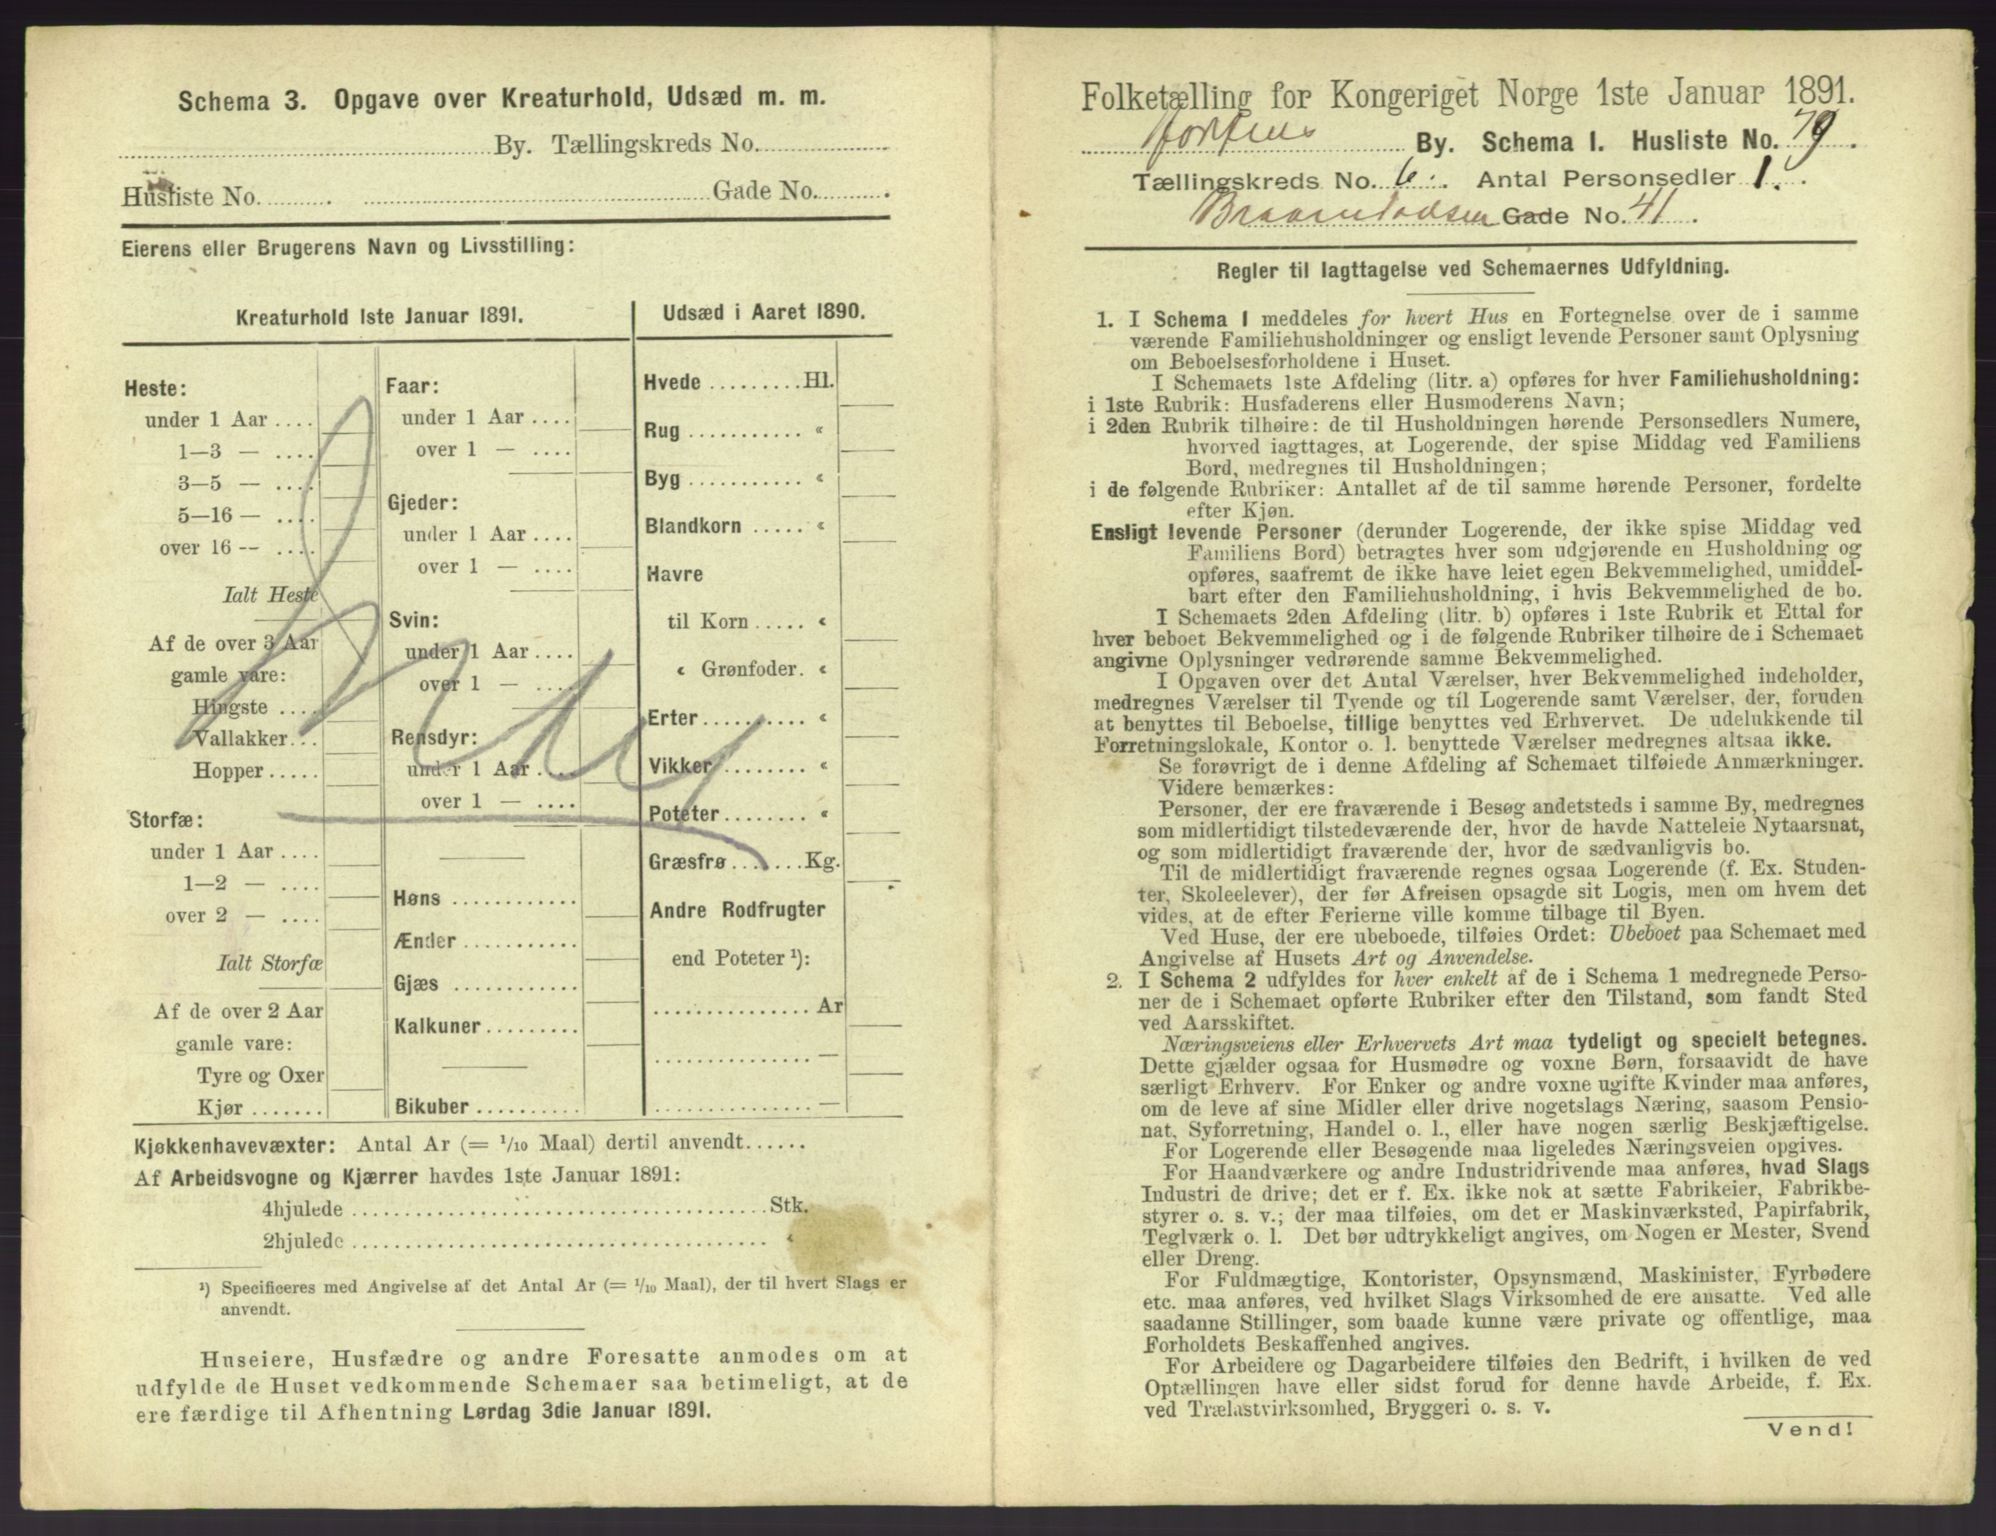 Schema 3. Opgave over Kreaturhold, Udsæd m. m.
By. Tællingskreds No.
Husliste No. Gade No.
Eierens eller Brugerens Navn og Livsstilling:
Kreaturhold 1ste Januar 1891.
Heste:
under 1 Aar ....
1—3 — ....
3—5 — ....
5—16 — ....
over 16 — ....
Ialt Heste
Af de over 3 Aar
gamle vare:
Hingste ....
Vallakker...
Hopper .....
Storfæ:
under 1 Aar ....
1—2 — ....
over 2 — ....
Ialt Storfæ
Af de over 2 Aar
gamle vare:
Tyre og Oxer
Kjør .......
Faar:
under 1 Aar ....
over 1 — ....
Gjeder:
under 1 Aar ....
over 1 — ....
Svin:
under 1 Aar ....
over 1 — ....
Rensdyr:
under 1 Aar ....
over 1 — ....
Høns ............
Ænder ...........
Gjæs ............
Kalkuner .........
Bikuber ..........
Udsæd i Aaret 1890.
Hvede ......... Hl.
Rug ........... «
Byg ........... «
Blandkorn ..... «
Havre
til Korn ..... «
« Grønfoder. «
Erter .......... «
Vikker ........ «
Poteter ........ «
Græsfrø ....... Kg.
Andre Rodfrugter
end Poteter ¹):
............... Ar
............... —
............... —
Kjøkkenhavevæxter: Antal Ar (= 1/10 Maal) dertil anvendt......
Af Arbeidsvogne og Kjærrer havdes 1ste Januar 1891:
4hjulede ........................................ Stk.
2hjulede ........................................ «
¹) Specificeres med Angivelse af det Antal Ar (= 1/10 Maal), der til hvert Slags er
anvendt.
Huseiere, Husfædre og andre Foresatte anmodes om at
udfylde de Huset vedkommende Schemaer saa betimeligt, at de
ere færdige til Afhentning Lørdag 3die Januar 1891.
Folketælling for Kongeriget Norge 1ste Januar 1891.
Hortens By. Schema I. Husliste No. 79.
Tællingskreds No. 6. Antal Personsedler 1.
Gade No. 41.
Regler til Iagttagelse ved Schemaernes Udfyldning.
1. I Schema 1 meddeles for hvert Hus en Fortegnelse over de i samme
værende Familiehusholdninger og ensligt levende Personer samt Oplysning
om Beboelsesforholdene i Huset.
I Schemaets 1ste Afdeling (litr. a) opføres for hver Familiehusholdning:
i 1ste Rubrik: Husfaderens eller Husmoderens Navn;
i 2den Rubrik tilhøire: de til Husholdningen hørende Personsedlers Numere,
hvorved iagttages, at Logerende, der spise Middag ved Familiens
Bord, medregnes til Husholdningen;
i de følgende Rubriker: Antallet af de til samme hørende Personer, fordelte
efter Kjøn.
Ensligt levende Personer (derunder Logerende, der ikke spise Middag ved
Familiens Bord) betragtes hver som udgjørende en Husholdning og
opføres, saafremt de ikke have leiet egen Bekvemmelighed, umiddel-
bart efter den Familiehusholdning, i hvis Bekvemmelighed de bo.
I Schemaets 2den Afdeling (litr. b) opføres i 1ste Rubrik et Ettal for
hver beboet Bekvemmelighed og i de følgende Rubriker tilhøire de i Schemaet
angivne Oplysninger vedrørende samme Bekvemmelighed.
I Opgaven over det Antal Værelser, hver Bekvemmelighed indeholder,
medregnes Værelser til Tyende og til Logerende samt Værelser, der, foruden
at benyttes til Beboelse, tillige benyttes ved Erhvervet. De udelukkende til
Forretningslokale, Kontor o. l. benyttede Værelser medregnes altsaa ikke.
Se forøvrigt de i denne Afdeling af Schemaet tilføiede Anmærkninger.
Videre bemærkes:
Personer, der ere fraværende i Besøg andetsteds i samme By, medregnes
som midlertidigt tilstedeværende der, hvor de havde Natteleie Nytaarsnat,
og som midlertidigt fraværende der, hvor de sædvanligvis bo.
Til de midlertidigt fraværende regnes ogsaa Logerende (f. Ex. Studen-
ter, Skoleelever), der før Afreisen opsagde sit Logis, men om hvem det
vides, at de efter Ferierne ville komme tilbage til Byen.
Ved Huse, der ere ubeboede, tilføies Ordet: Ubeboet paa Schemaet med
Angivelse af Husets Art og Anvendelse.
2. I Schema 2 udfyldes for hver enkelt af de i Schema 1 medregnede Perso-
ner de i Schemaet opførte Rubriker efter den Tilstand, som fandt Sted
ved Aarsskiftet.
Næringsveiens eller Erhvervets Art maa tydeligt og specielt betegnes.
Dette gjælder ogsaa for Husmødre og voxne Børn, forsaavidt de have
særligt Erhverv. For Enker og andre voxne ugifte Kvinder maa anføres,
om de leve af sine Midler eller drive nogetslags Næring, saasom Pensio-
nat, Syforretning, Handel o. l., eller have nogen særlig Beskjæftigelse.
For Logerende eller Besøgende maa ligeledes Næringsveien opgives.
For Haandværkere og andre Industridrivende maa anføres, hvad Slags
Industri de drive; det er f. Ex. ikke nok at sætte Fabrikeier, Fabrikbe-
styrer o. s. v.; der maa tilføies, om det er Maskinværksted, Papirfabrik,
Teglværk o. l. Det bør udtrykkeligt angives, om Nogen er Mester, Svend
eller Dreng.
For Fuldmægtige, Kontorister, Opsynsmænd, Maskinister, Fyrbødere
etc. maa anføres, ved hvilket Slags Virksomhed de ere ansatte. Ved alle
saadanne Stillinger, som baade kunne være private og offentlige, maa
Forholdets Beskaffenhed angives.
For Arbeidere og Dagarbeidere tilføies den Bedrift, i hvilken de ved
Optællingen have eller sidst forud for denne havde Arbeide, f. Ex.
ved Trælastvirksomhed, Bryggeri o. s. v.
Vend!